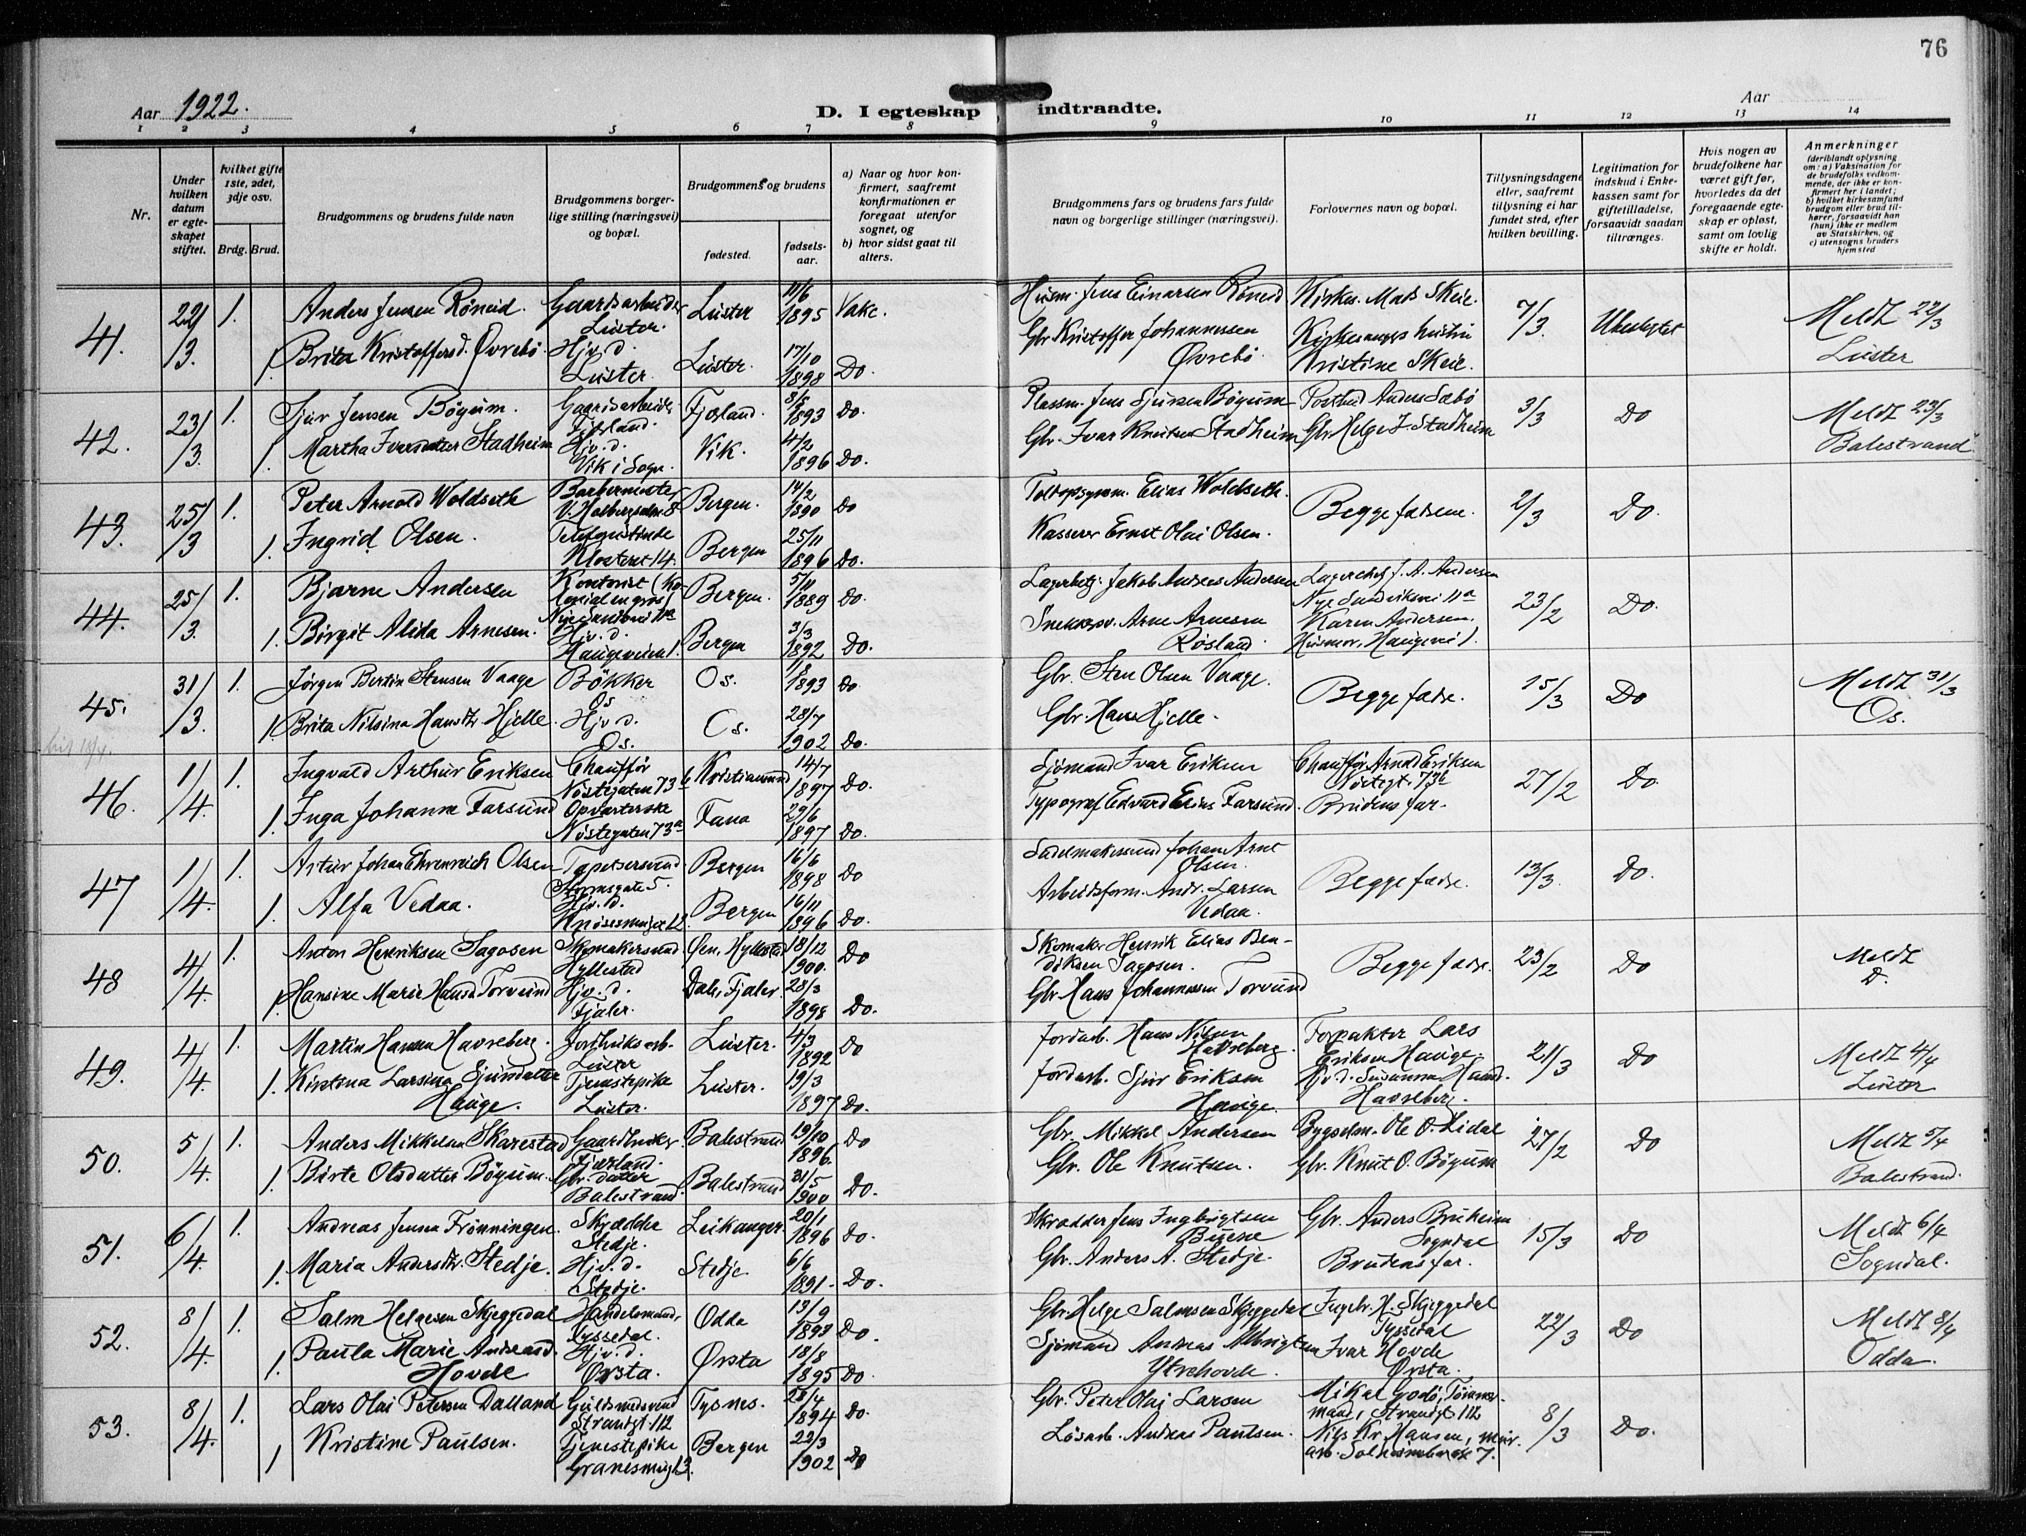 76
Aar 1922.
D. I egteskap indtraadte.
Aar
1 2 3 4 5 6 7 8 9 10 11 12 13 14
Nr.
Under hvilken datum er egteskapet stiftet.
hvilket gifte 1ste, 2det, 3dje osv.
Brdg. Brud.
Brudgommens og brudens fulde navn
Brudgommens borgerlige stilling (næringsvei) og bopæl.
Brudgommens og brudens
fødested.
fødselsaar.
a) Naar og hvor konfirmert, saafremt konfirmationen er foregaat utenfor sognet, og
b) hvor sidst gaat til alters.
Brudgommens fars og brudens fars fulde navn og borgerlige stillinger (næringsvei).
Forlovernes navn og bopæl.
Tillysningsdagene eller, saafremt tillysning ei har fundet sted, efter hvilken bevilling.
Legitimation for indskud i Enkekassen samt for giftetilladelse, forsaavidt saadan tiltrænges.
Hvis nogen av brudefolkene har været gift før, hvorledes da det foregaaende egteskap er opløst, samt om lovlig skifte er holdt.
Anmerkninger (deriblandt oplysning om: a) Vaksination for de brudefolks vedkommende, der ikke er konfirmert her i landet; b) hvilket kirkesamfund brudgom eller brud tilhører, forsaavidt han (hun) ikke er medlem av Statskirken, og c) utensogns bruders hjemsted
41. 22/3 1. Anders Jensen Röneid. Gaardsarbeider Luster. Luster 1895 Vakc. Husm. Jens Einarsen Röneid Kirkes. Mads Skeie. 7/3. Ubeslegtet Meldt 22/3 Luster
1. Brita Kristoffersd. Øvrebö. Hjv. d. Luster. Luster. 17/10 1898 Do. Gbr. Kristoffer Johannessen Øvrebö. Kristine Skeie.
42. 23/3. 1. Sjur Jensen Böyum. Gaardsarbeider Fjærland. Fjærland. 1893 Do. Plassm. Jens Sjursen Böyum Postbud Anders Sæbö 3/3 Do Meldt 23/3 Balestrand
1. Martha Iversdatter Stadheim Hjv. d. Vik i Sogn. Vik. 4/2 1896 Do. Gbr. Ivar Knutsen Stadheim Gbr. Helge I. Stadheim
43. 25/3 1. Peter Arnold Woldseth Barbermester Bergen. 14/2 1890 Do Toldopsynsm. Elias Woldseth. Begge fædrene. 2/3 Do.
1. Ingrid Olsen. Telefonistinde Klosteret 14. Bergen 25/11 1896 Do. Kasserer Ernst Olai Olsen.
44. 25/3. 1. Bjarne Andersen Kontorist (Kolonial en gros) Nye Sandviksvei 11a Bergen. 5/11 1889 Do. Jakob Andreas Andersen Lagerchef J. A. Andersen Nye Sandviksvei 11a 23/2 Do.
1. Birgit Alida Arnesen. Hjv. d. Haugeveien 1. Bergen 3/3 1892 Do. Arne Arnesen Røsland. Karen Andersen. Husmor, Haugevei 1.
45. 31/3 1. Jörgen Bertin Stensen Vaage Bökker Os Os. 1/8 1893 Do Gbr. Sten Olsen Vaage. Begge fædre. 15/3 Do Meldt 31/3 Os.
1. Brita Nilsina Hansdtr. Hjelle. Hjv. d. Os. Os. 28/7 1902 Do. Gbr. Hans Hjelle.
46. 1/4. 1. Ingvald Arthur Eriksen Chaufför Nöstegaten 73b Kristiansund 14/7 1897 Do. Sjömand Ivar Eriksen Chauffør Arnold Eriksen Nöstegt. 73b 27/2 Do.
1. Inga Johanne Farsund Opvarterske Nöstegaten 73a Fana 29/6 1897 Do. Typograf Edvard Elias Farsund. Brudens far.
47 1/4. 1. Artur Johan Ehrenreich Olsen Tapetsersvend Strømsgate 5. Bergen 16/6 1898 Do Sadelmakersvend Johan Arnt Olsen. Begge fædre. 13/3. Do.
1. Alfa Vedaa. Hjv. d. Knøsesmuget 12. Bergen 16/11 1896 Do. Arbeidsform. Andr. Larsen Vedaa.
48 4/4. 1. Anton Henriksen Sagosen Skomakersvend Hyllestad Øen, Hyllestad 18/12 1900. Do Skomaker Henrik Elias Bendiksen Sagosen. Begge fædre. 23/2 Do Meldt D.
1. Hansine Marie Hansd. Torvund Hjv. d. Fjaler. Dale, Fjaler. 28/3 1898 Do. Gbr. Hans Johannessen Torvund
49. 4/4. 1. Martin Hansen Havreberg. Jordbruksarb. Luster Luster. 4/3 1892 Do Jordarb. Hans Nilsen Havreberg. Forpakter Lars Eriksen Hauge. 21/3 Do Meldt 4/4 Luster
1. Kirstina Larsina Sjursdatter Hauge. Tjenestepike Luster. Luster. 19/3 1897 Do. Jordarb. Sjur Eriksen Hauge. Hjv. d. Susanna Hansd. Havreberg.
50. 5/4. 1. Anders Mikkelsen Skarestad Gaardbruker Fjærland. Balestrand 19/10 1896. Do Gbr. Mikkel Andersen Bygselm. Ole O. Lidal 27/2 Do Meldt 5/4 Balestrand.
1. Birte Olsdatter Böyum. Gbr. datter Balestrand. Balestrand 31/5 1900 Do. Gbr. Ole Knutsen. Gbr. Knut O. Böyum
51. 6/4. 1. Andreas Jensen Frönningen. Skrædder Stedje. Leikanger 20/1 1896 Do. Skrædder Jens Ingbrigtsen Gbr. Anders Bruheim Sogndal 15/3 Do Meldt 6/4 Sogndal.
1. Maria Andersdtr. Stedje. Hjv. d. Stedje. Stedje 6/6 1891. Do. Gbr. Anders A. Stedje. Brudens far.
52. 8/4. 1. Salm Helgesen Skjeggedal Handelsmand, Tyssedal. Odda 13/9 1893 Do. Gbr. Helge Salmsen Skjeggedal Ingebr. H. Skjeggedal Tyssedal 22/3 Do Meldt 8/4 Odda.
1. Paula Marie Andreasd. Hovde Hjv. d. Ørsta. Ørsta 18/8 1895 Do. Sjömand Andreas Albrigtsen Ytrehovde. Ivar Hovde Ørsta.
53. 8/4. 1. Lars Olai Petersen Dalland Guldsmedsvend Strandgt. 112 Tysnes. 1894 Do. Gbr. Peter Olai Larsen Mikal Godö, Tømmermand, Strandgt. 112 8/3 Do.
1 Kristine Paulsen. Tjenestepike Granesmug 13. Bergen 22/3 1902 Do Løsarb. Andreas Paulsen. Nils Kr. Hansen, murarb.